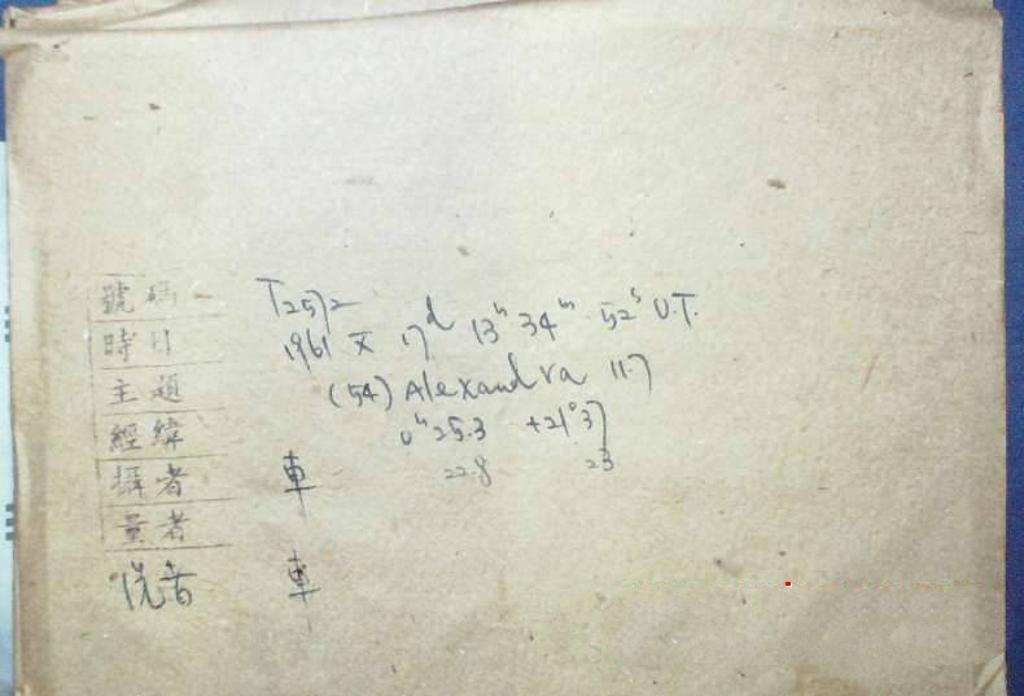 號碼 T2572
時日 1961 X 17d 13h 34m 52s U.T.
主題 (54) Alexandra 11.7
經緯 0h 25.3 +21°37
22.8 23
攝者 車
量者
洗者 車